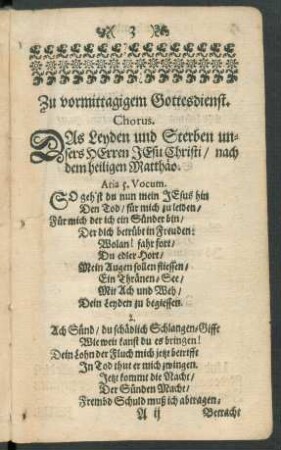 3
Zu vormittagigem Gottesdienst.
Chorus.
DAs Leyden und Sterben un-
sers HErren JEsu Christi / nach
dem heiligen Matthäo.
Aria 5. Vocum.
SO geh'st du nun mein JEsus hin
Den Tod / für mich zu leiden /
Für mich der ich ein Sünder bin /
Der dich betrübt in Freuden:
Wolan! fahr fort /
Du edler Hort /
Mein Augen sollen fliessen /
Ein Thränen-See /
Mit Ach und Weh /
Dein Leyden zu begiessen.
2.
Ach Sünd / du schädlich Schlangen-Gifft
Wie weit kanst du es bringen!
Dein Lohn der Fluch mich jetzt betrifft
In Tod thut er mich zwingen.
Jetzt kommt die Nacht /
Der Sünden Macht /
Frembd Schuld muß ich abtragen,
A ij Betracht